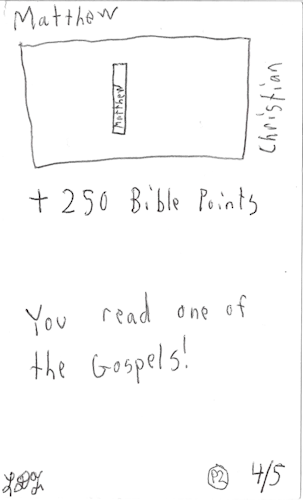 Matthew
Matthew
Christian
+ 250 Bible Points
You read one of
the Gospels!
P2 4/5